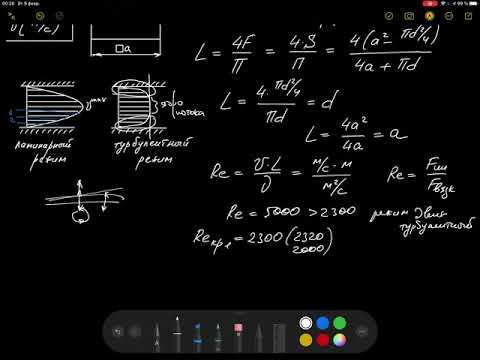 00:26 Вт 9 февр.
99 %
ϑ(м/с)
□a
L = 4F/П = 4·S/П = 4(a² − πd²/4)/(4a + πd)
L = (4·πd²/4)/πd = d
L = 4a²/4a = a
ϑmax
ядро потока
ламинарный режим
турбулентный режим
Re = ϑ·L/ν = (м/с · м)/(м²/с)
Re = Fин/Fвязк
Re = 5000 > 2300 режим движ турбулентный
Reкр = 2300 (2320 2000)